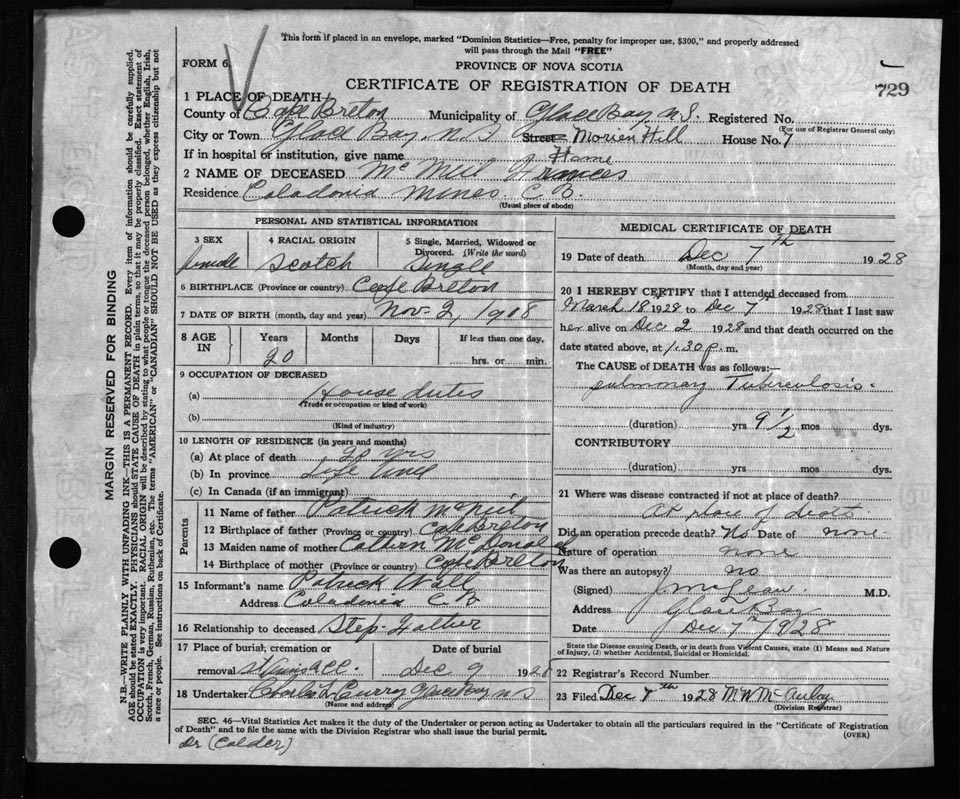 This form if placed in an envelope, marked "Dominion Statistics—Free, penalty for improper use, $300," and properly addressed
will pass through the Mail "FREE"
FORM 6.
PROVINCE OF NOVA SCOTIA
CERTIFICATE OF REGISTRATION OF DEATH
729
1 PLACE OF DEATH—
County of Cape Breton Municipality of Glace Bay N.S. Registered No.
(For use of Registrar General only)
City or Town Glace Bay, N.S. Street Morien Hill House No. 7
If in hospital or institution, give name Home
2 NAME OF DECEASED McNeil Frances
Residence Caladonia Mines C.B.
(Usual place of abode)
PERSONAL AND STATISTICAL INFORMATION
3 SEX 4 RACIAL ORIGIN 5 Single, Married, Widowed or Divorced. (Write the word)
female Scotch Single
6 BIRTHPLACE (Province or country) Cape Breton
7 DATE OF BIRTH (month, day and year) Nov. 2, 1908
8 AGE IN Years Months Days If less than one day,
20 hrs. or min.
9 OCCUPATION OF DECEASED
(a) House duties
(Trade or occupation or kind of work)
(b)
(Kind of industry)
10 LENGTH OF RESIDENCE (in years and months)
(a) At place of death 20 yrs
(b) In province Life time
(c) In Canada (if an immigrant)
Parents
11 Name of father Patrick McNeil
12 Birthplace of father (Province or country) Cape Breton
13 Maiden name of mother Cathern McDonald
14 Birthplace of mother (Province or country) Cape Breton
15 Informant's name Patrick Wall
Address Caladonia C.B
16 Relationship to deceased Step-Father
17 Place of burial, cremation or Date of burial
removal St Anns G.B. Dec 9 1928
18 Undertaker Charles L Curry Glace Bay N.S
(Name and address)
MEDICAL CERTIFICATE OF DEATH
19 Date of death Dec 7th 1928
(Month, day and year)
20 I HEREBY CERTIFY that I attended deceased from
March 18 1928 to Dec 7th 1928 that I last saw
her alive on Dec 2 1928 and that death occurred on
date stated above, at 1.30 p.m.
The CAUSE OF DEATH was as follows:—
pulmonary Tuberculosis.
(duration) yrs 9 1/2 mos dys.
CONTRIBUTORY
(duration) yrs mos dys.
21 Where was disease contracted if not at place of death?
At place of death
Did an operation precede death? No. Date of none.
Nature of operation none
Was there an autopsy? no
(Signed) M.D.
Address Glace Bay
Date Dec 7th 1928
State the Disease causing Death, or in death from Violent Causes, state (1) Means and Nature
of Injury, (2) whether Accidental, Suicidal or Homicidal.
22 Registrar's Record Number
23 Filed Dec 7th 1928 M W McAuley
(Division Registrar)
SEC. 46—Vital Statistics Act makes it the duty of the Undertaker or person acting as Undertaker to obtain all the particulars required in the "Certificate of Registration
of Death" and to file the same with the Division Registrar who shall issue the burial permit.
(OVER)
Dr (Calder)
MARGIN RESERVED FOR BINDING
N.B.—WRITE PLAINLY WITH UNFADING INK—THIS IS A PERMANENT RECORD. Every item of information should be carefully supplied.
AGE should be stated EXACTLY. PHYSICIANS should STATE CAUSE OF DEATH in plain terms, so that it may be properly classified. Exact statement of
OCCUPATION is very important. RACIAL ORIGIN will be described by stating to what people or tongue the deceased person belonged, whether English, Irish,
Scotch, French, German, Russian, Ruthenian, etc. The terms "AMERICAN" or "CANADIAN" SHOULD NOT BE USED as they express citizenship but not
a race or people. See instructions on back of Certificate.